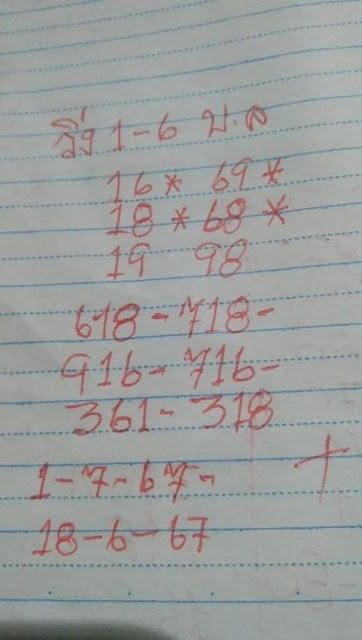 วิ่ง 1-6 บ.ล
16* 69*
18*68*
19 98
618-718-
916-716-
361-318
1-7-67-
18-6-67